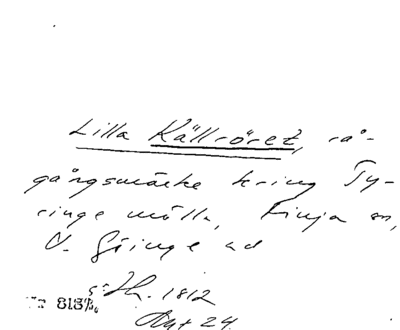 Lilla Källröret, rå-
gångsmärke kring Ty-
ringe mölla, Finja sn,
V. Göinge hd
Sk. 1812
Akt 24.